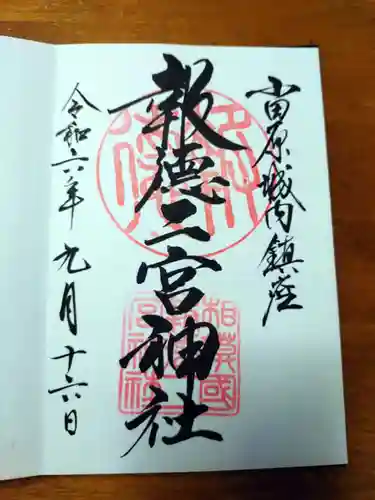 小田原城内鎮座
報徳二宮神社
令和六年九月十六日
相模國